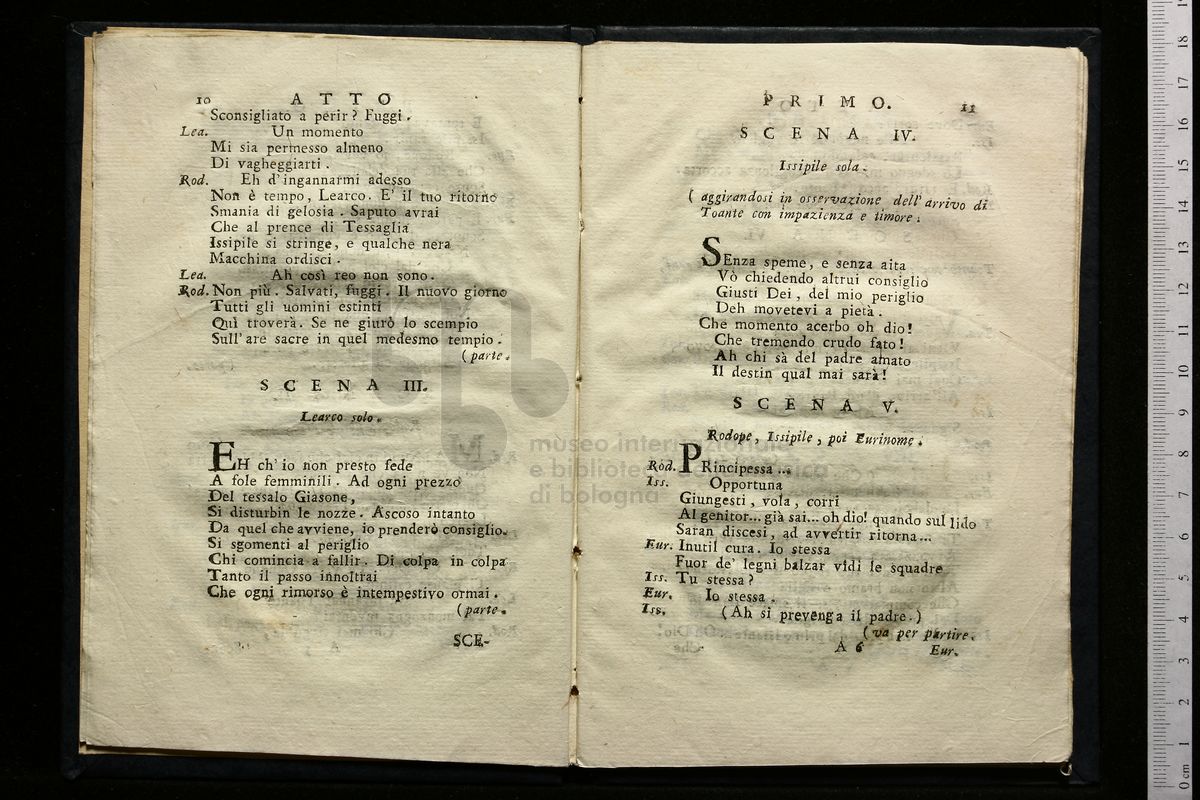 10 ATTO
Sconsigliato a perir? Fuggi.
Lea. Un momento
Mi sia permesso almeno
Di vagheggiarti.
Rod. Eh d'ingannarmi adesso
Non è tempo, Learco. E' il tuo ritorno
Smania di gelosia. Saputo avrai
Che al prence di Tessaglia
Issipile si stringe, e qualche nera
Macchina ordisci.
Lea. Ah così reo non sono.
Rod. Non più. Salvati, fuggi. Il nuovo giorno
Tutti gli uomini estinti
Quì troverà. Se ne giurò lo scempio
Sull'are sacre in quel medesmo tempio.
(parte.
SCENA III.
Learco solo.
EH ch'io non presto fede
A fole femminili. Ad ogni prezzo
Del tessalo Giasone,
Si disturbin le nozze. Ascoso intanto
Da quel che avviene, io prenderò consiglio.
Si sgomenti al periglio
Chi comincia a fallir. Di colpa in colpa
Tanto il passo innoltrai
Che ogni rimorso è intempestivo ormai.
(parte.
SCE-
PRIMO. 11
SCENA IV.
Issipile sola.
( aggirandosi in osservazione dell'arrivo di
Toante con impazienza e timore.
SEnza speme, e senza aita
Vò chiedendo altrui consiglio
Giusti Dei, del mio periglio
Deh movetevi a pietà.
Che momento acerbo oh dio!
Che tremendo crudo fato!
Ah chi sà del padre amato
Il destin qual mai sarà!
SCENA V.
Rodope, Issipile, poi Eurinome.
Rod. PRincipessa ...
Iss. Opportuna
Giungesti, vola, corri
Al genitor... già sai... oh dio! quando sul lido
Saran discesi, ad avvertir ritorna...
Eur. Inutil cura. Io stessa
Fuor de' legni balzar vidi le squadre
Iss. Tu stessa?
Eur. Io stessa.
Iss. (Ah si prevenga il padre.)
(va per partire.
A 6 Eur.
museo internazionale
e biblioteca della musica
di bologna
0 cm 1 2 3 4 5 6 7 8 9 10 11 12 13 14 15 16 17 18